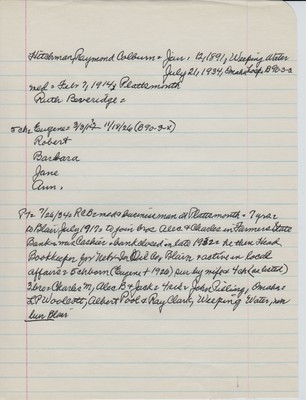 Hitchman, Raymond Colburn = Jan. 12, 1891, Weeping Water
July 21, 1934, Omaha Hosp B90-3-2
med = Feb 7, 1914, Plattsmouth
Ruth Beveridge =
5 ch = Eugene = 11/18/26 (B90-3-2)
Robert
Barbara
Jane
Ann.
7/26/34 = RCB = med = businessman at Plattsmouth = 7 yrs =
to Blair July 1919 = to join bros Alex & Charles in Farmers State
Bank = was Cashier = bank closed in late = he then Head
Bookkeeper for Nebr. Oil Co, Blair = active in local
affairs = 5 ch born (Eugene + 1926) sur by wife = 4 ch (as listed)
3 bros = Charles M, Alex B = Jack = 4 sis = John, Omaha =
LP Woolcott, Albert Pool & Ray Clark, Weeping Water,
bur Blair